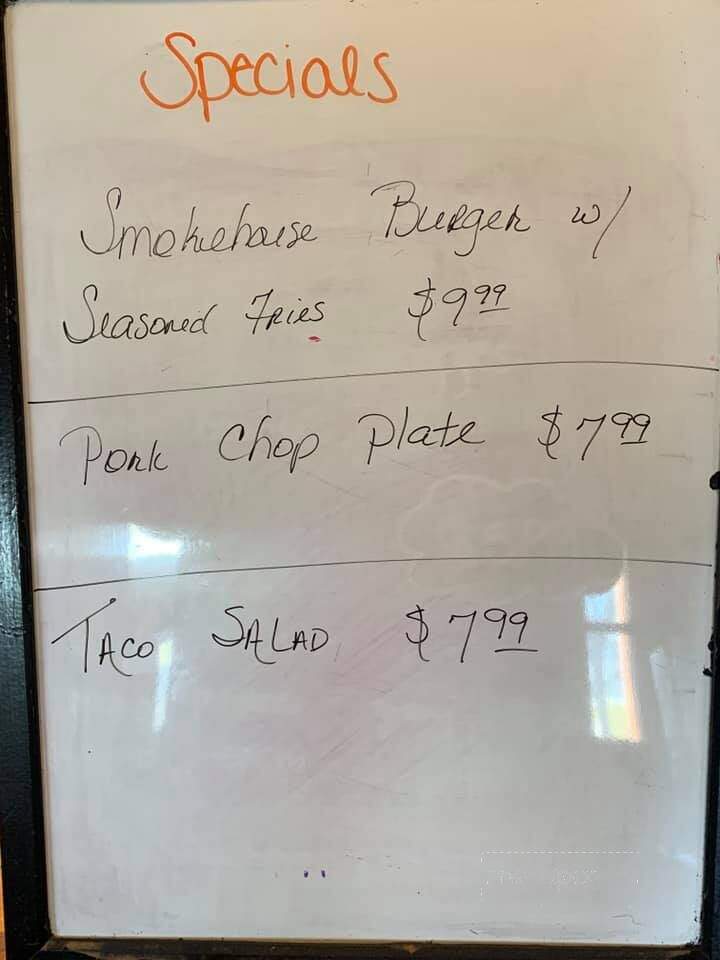 Specials
Smokehouse Burger w/
Seasoned Fries $9.99
Pork Chop Plate $7.99
Taco Salad $7.99